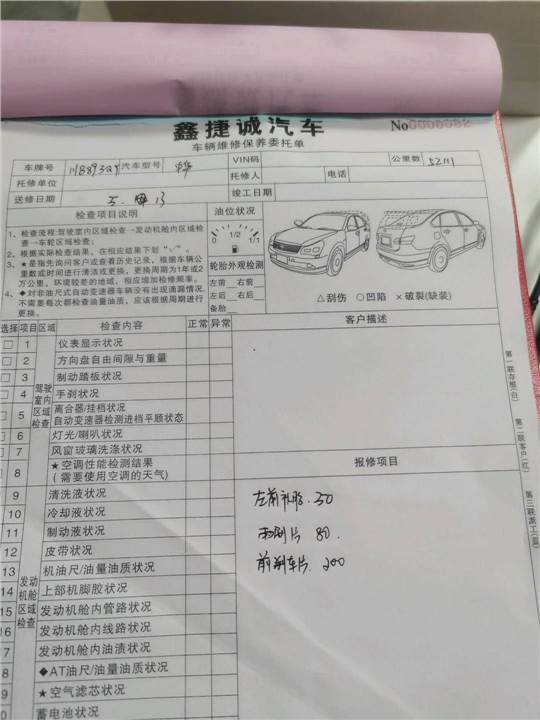 鑫捷诚汽车
No 0000082
车辆维修保养委托单
车牌号 汽车型号 VIN码 公里数 52111
托修单位 托修人 电话
送修日期 竣工日期
检查项目说明 油位状况
1、检查流程:驾驶室内区域检查→发动机舱内区域检
查→车轮区域检查;
2、根据实际检查结果，在相应结果下划“√”。
3、★是指先询问客户或查看历史记录，根据车辆公
里数或时间进行清洁或更换，更换周期为1年或2
万公里。环境较差的地域，相应增加检修频率。
4、◆对非油尺式自动变速器车辆没有出现滴漏情况，
不需要每次都检查油量油质，应该根据周期进行
更换。
0 1/2 1/1
轮胎外观检测
左前 右前
左后 右后
备胎
△刮伤 ○凹陷 ×破裂(缺装)
选择 项目 区域 检查内容 正常 异常
客户描述
驾驶室内区域检查
□ 1 仪表显示状况
□ 2 方向盘自由间隙与重量
□ 3 制动踏板状况
□ 4 手刹状况
□ 5 离合器/挂档状况
自动变速器检测进档平顺状态
□ 6 灯光/喇叭状况
□ 7 风窗玻璃洗涤状况
□ 8 ★空调性能检测结果
(需要使用空调的天气)
报修项目
发动机舱区域检查
9 清洗液状况
10 冷却液状况
11 制动液状况
12 皮带状况
13 机油尺/油量油质状况
14 上部机脚胶状况
15 发动机舱内管路状况
16 发动机舱内线路状况
7 发动机舱内油渍状况
8 ◆AT油尺/油量油质状况
9 ★空气滤芯状况
0 蓄电池状况
左前补胎 50
雨刮片 80
前刹车片 200
第一联存根(白)
第二联客户(红)
第三联派工(蓝)